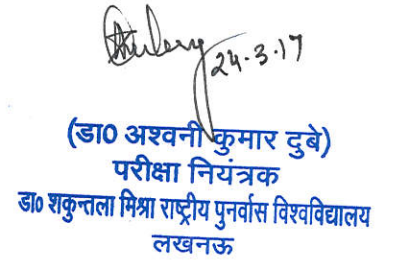 24.3.17
(डा0 अश्वनी कुमार दुबे)
परीक्षा नियंत्रक
डा0 शकुन्तला मिश्रा राष्ट्रीय पुनर्वास विश्वविद्यालय
लखनऊ